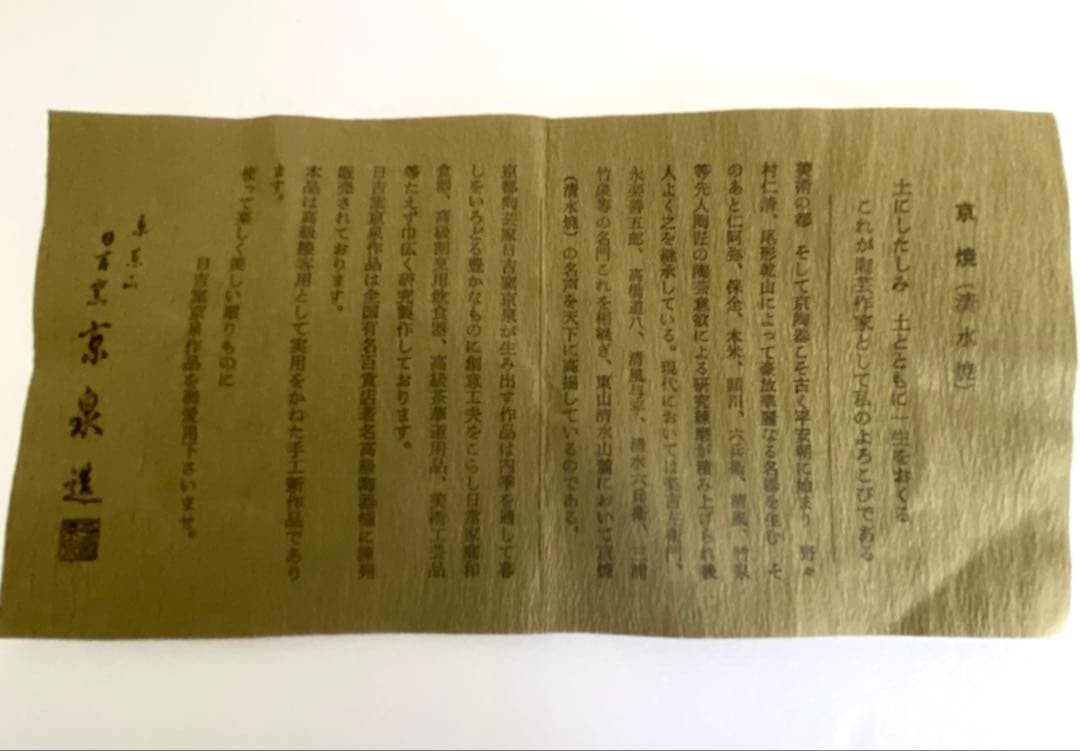 京焼(清水焼)
土にしたしみ 土とともに一生をおくる
これが陶芸作家として私のよろこびである
美術の都 そして京陶器こそ古く平安朝に始まり 野々
村仁清、尾形乾山によって豪放華麗なる名器を生む そ
のあと仁阿弥、保全、木米、頴川、六兵衛、清風、竹泉
等先人陶匠の陶芸意欲による研究錬磨が積み上げられ後
人よく之を継承している。現代においては楽吉左衛門、
永楽善五郎、高橋道八、清風与平、清水六兵衛、三浦
竹泉等の名門これを相継ぎ、東山清水山麓において京焼
(清水焼)の名声を天下に高揚しているのである。
京都陶芸家日吉窯京泉が生み出す作品は四季を通して暮
しをいろどる豊かなものに創意工夫をこらし日常家庭和
食器、高級割烹用飲食器、高級茶華道用品、美術工芸品
等たえず巾広く研究製作しております。
日吉窯京泉作品は全国有名百貨店著名高級陶器舗に陳列
販売されております。
本品は高級接客用として実用をかねた手工新作品であり
ます。
使って楽しく美しい贈りものに
日吉窯京泉作品を御愛用下さいませ。
日吉窯 京泉造